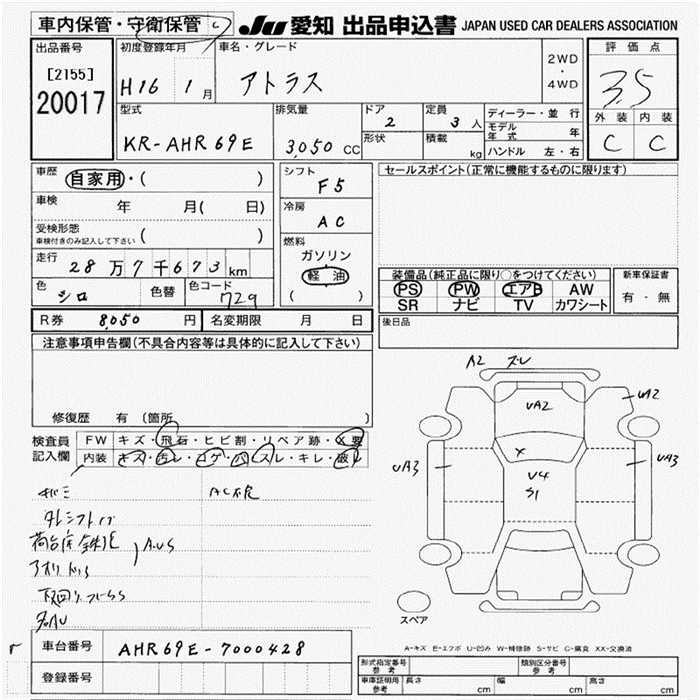 車内保管・守衛保管 JU 愛知 出品申込書 JAPAN USED CAR DEALERS ASSOCIATION
出品番号
[2155]
20017
初度登録年月
H16 1月
車名・グレード
アトラス
2WD
・
4WD
評価点
3.5
外装 内装
C C
型式
KR-AHR69E
排気量
3,050 CC
ドア
2
形状
定員
3人
積載
kg
ディーラー・並行
モデル年式 年
ハンドル 左・右
車歴
自家用・( )
車検
年 月( 日)
受検形態
車検付きのみ記入して下さい ( )
走行
28万7千673km
色
シロ
色替
色コード
729
シフト
F5
冷房
AC
燃料
ガソリン
軽油
( )
セールスポイント(正常に機能するものに限ります)
装備品(純正品に限り○をつけてください)
PS PW エアB AW
SR ナビ TV カワシート
新車保証書
有・無
後日品
R券 8,050円 名変期限 月 日
注意事項申告欄(不具合内容等は具体的に記入して下さい)
修復歴 有 (箇所 )
検査員
記入欄
FW キズ・飛石・ヒビ割・リペア跡・X要
内装 キズ・汚レ・コゲ・穴・スレ・キレ・破レ
AC不良
A2 ズレ
UA2
UA2
UA3
UA3
X
U4
S1
スペア
A-キズ E-エクボ U-凹み W-補修跡 S-サビ C-腐食 XX-交換済
車台番号 AHR69E-7000428
登録番号
形式指定番号
参考
類別区分番号
参考
車庫証明用
参考
長さ cm 幅 cm 高さ cm